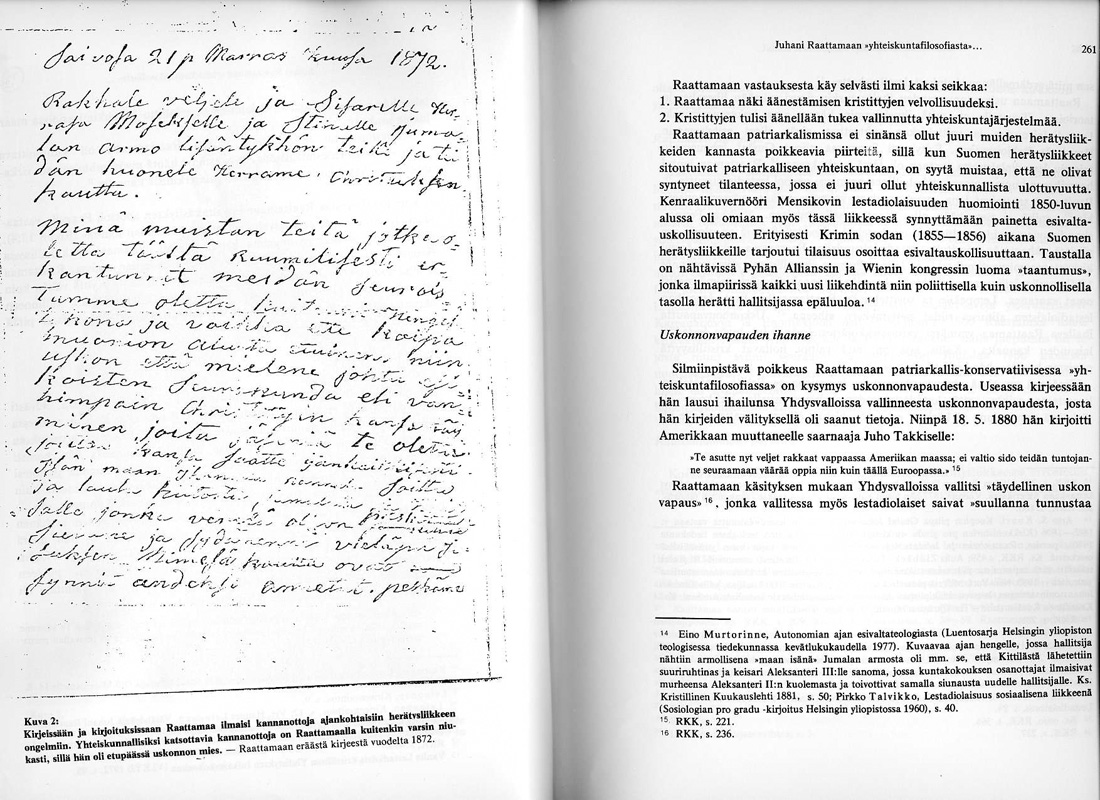 Saivosa 21 p Marras kuusa 1872.
Rakkale veljele ja Sisarelle Her-
rasa Moseksjelle ja Stinalle Juma-
lan armo lisäntykhön teile ja tei
dän huonele Herrame. Christuksen
kautta.
Minä muistan teitä jotka o-
letta täältä ruumilisesti er-
meidän seuras
tumme oletta
ja vaikka
niin
uskon että mielene johta
Seurakunda eli van
himpain
minen joita te oletta
kansa saatte
maan
ja
Salle jonka on
Sienne ja Sydämenne
kautta ovat
synnit andeksi
Kuva 2:
Kirjeissään ja kirjoituksissaan Raattamaa ilmaisi kannanottoja ajankohtaisiin herätysliikkeen
ongelmiin. Yhteiskunnallisiksi katsottavia kannanottoja on Raattamaalla kuitenkin varsin niu-
kasti, sillä hän oli etupäässä uskonnon mies. — Raattamaan eräästä kirjeestä vuodelta 1872.
Juhani Raattamaan »yhteiskuntafilosofiasta»... 261
Raattamaan vastauksesta käy selvästi ilmi kaksi seikkaa:
1. Raattamaa näki äänestämisen kristittyjen velvollisuudeksi.
2. Kristittyjen tulisi äänellään tukea vallinnutta yhteiskuntajärjestelmää.
Raattamaan patriarkalismissa ei sinänsä ollut juuri muiden herätysliik-
keiden kannasta poikkeavia piirteitä, sillä kun Suomen herätysliikkeet
sitoutuivat patriarkalliseen yhteiskuntaan, on syytä muistaa, että ne olivat
syntyneet tilanteessa, jossa ei juuri ollut yhteiskunnallista ulottuvuutta.
Kenraalikuvernööri Mensikovin lestadiolaisuuden huomiointi 1850-luvun
alussa oli omiaan myös tässä liikkeessä synnyttämään painetta esivalta-
uskollisuuteen. Erityisesti Krimin sodan (1855—1856) aikana Suomen
herätysliikkeille tarjoutui tilaisuus osoittaa esivaltauskollisuuttaan. Taustalla
on nähtävissä Pyhän Allianssin ja Wienin kongressin luoma »taantumus»,
jonka ilmapiirissä kaikki uusi liikehdintä niin poliittisella kuin uskonnollisella
tasolla herätti hallitsijassa epäluuloa. 14
Uskonnonvapauden ihanne
Silmiinpistävä poikkeus Raattamaan patriarkallis-konservatiivisessa »yh-
teiskuntafilosofiassa» on kysymys uskonnonvapaudesta. Useassa kirjeessään
hän lausui ihailunsa Yhdysvalloissa vallinneesta uskonnonvapaudesta, josta
hän kirjeiden välityksellä oli saanut tietoja. Niinpä 18. 5. 1880 hän kirjoitti
Amerikkaan muuttaneelle saarnaaja Juho Takkiselle:
»Te asutte nyt veljet rakkaat vappaassa Ameriikan maassa; ei valtio sido teidän tuntojan-
ne seuraamaan väärää oppia niin kuin täällä Euroopassa.» 15
Raattamaan käsityksen mukaan Yhdysvalloissa vallitsi »täydellinen uskon
vapaus» 16, jonka vallitessa myös lestadiolaiset saivat »suullanna tunnustaa
14 Eino Murtorinne, Autonomian ajan esivaltateologiasta (Luentosarja Helsingin yliopiston
teologisessa tiedekunnassa kevätlukukaudella 1977). Kuvaavaa ajan hengelle, jossa hallitsija
nähtiin armollisena »maan isänä» Jumalan armosta oli mm. se, että Kittilästä lähetettiin
suuriruhtinas ja keisari Aleksanteri III:lle sanoma, jossa kuntakokouksen osanottajat ilmaisivat
murheensa Aleksanteri II:n kuolemasta ja toivottivat samalla siunausta uudelle hallitsijalle. Ks.
Kristillinen Kuukauslehti 1881, s. 50; Pirkko Talvikko, Lestadiolaisuus sosiaalisena liikkeenä
(Sosiologian pro gradu -kirjoitus Helsingin yliopistossa 1960), s. 40.
15 RKK, s. 221.
16 RKK, s. 236.